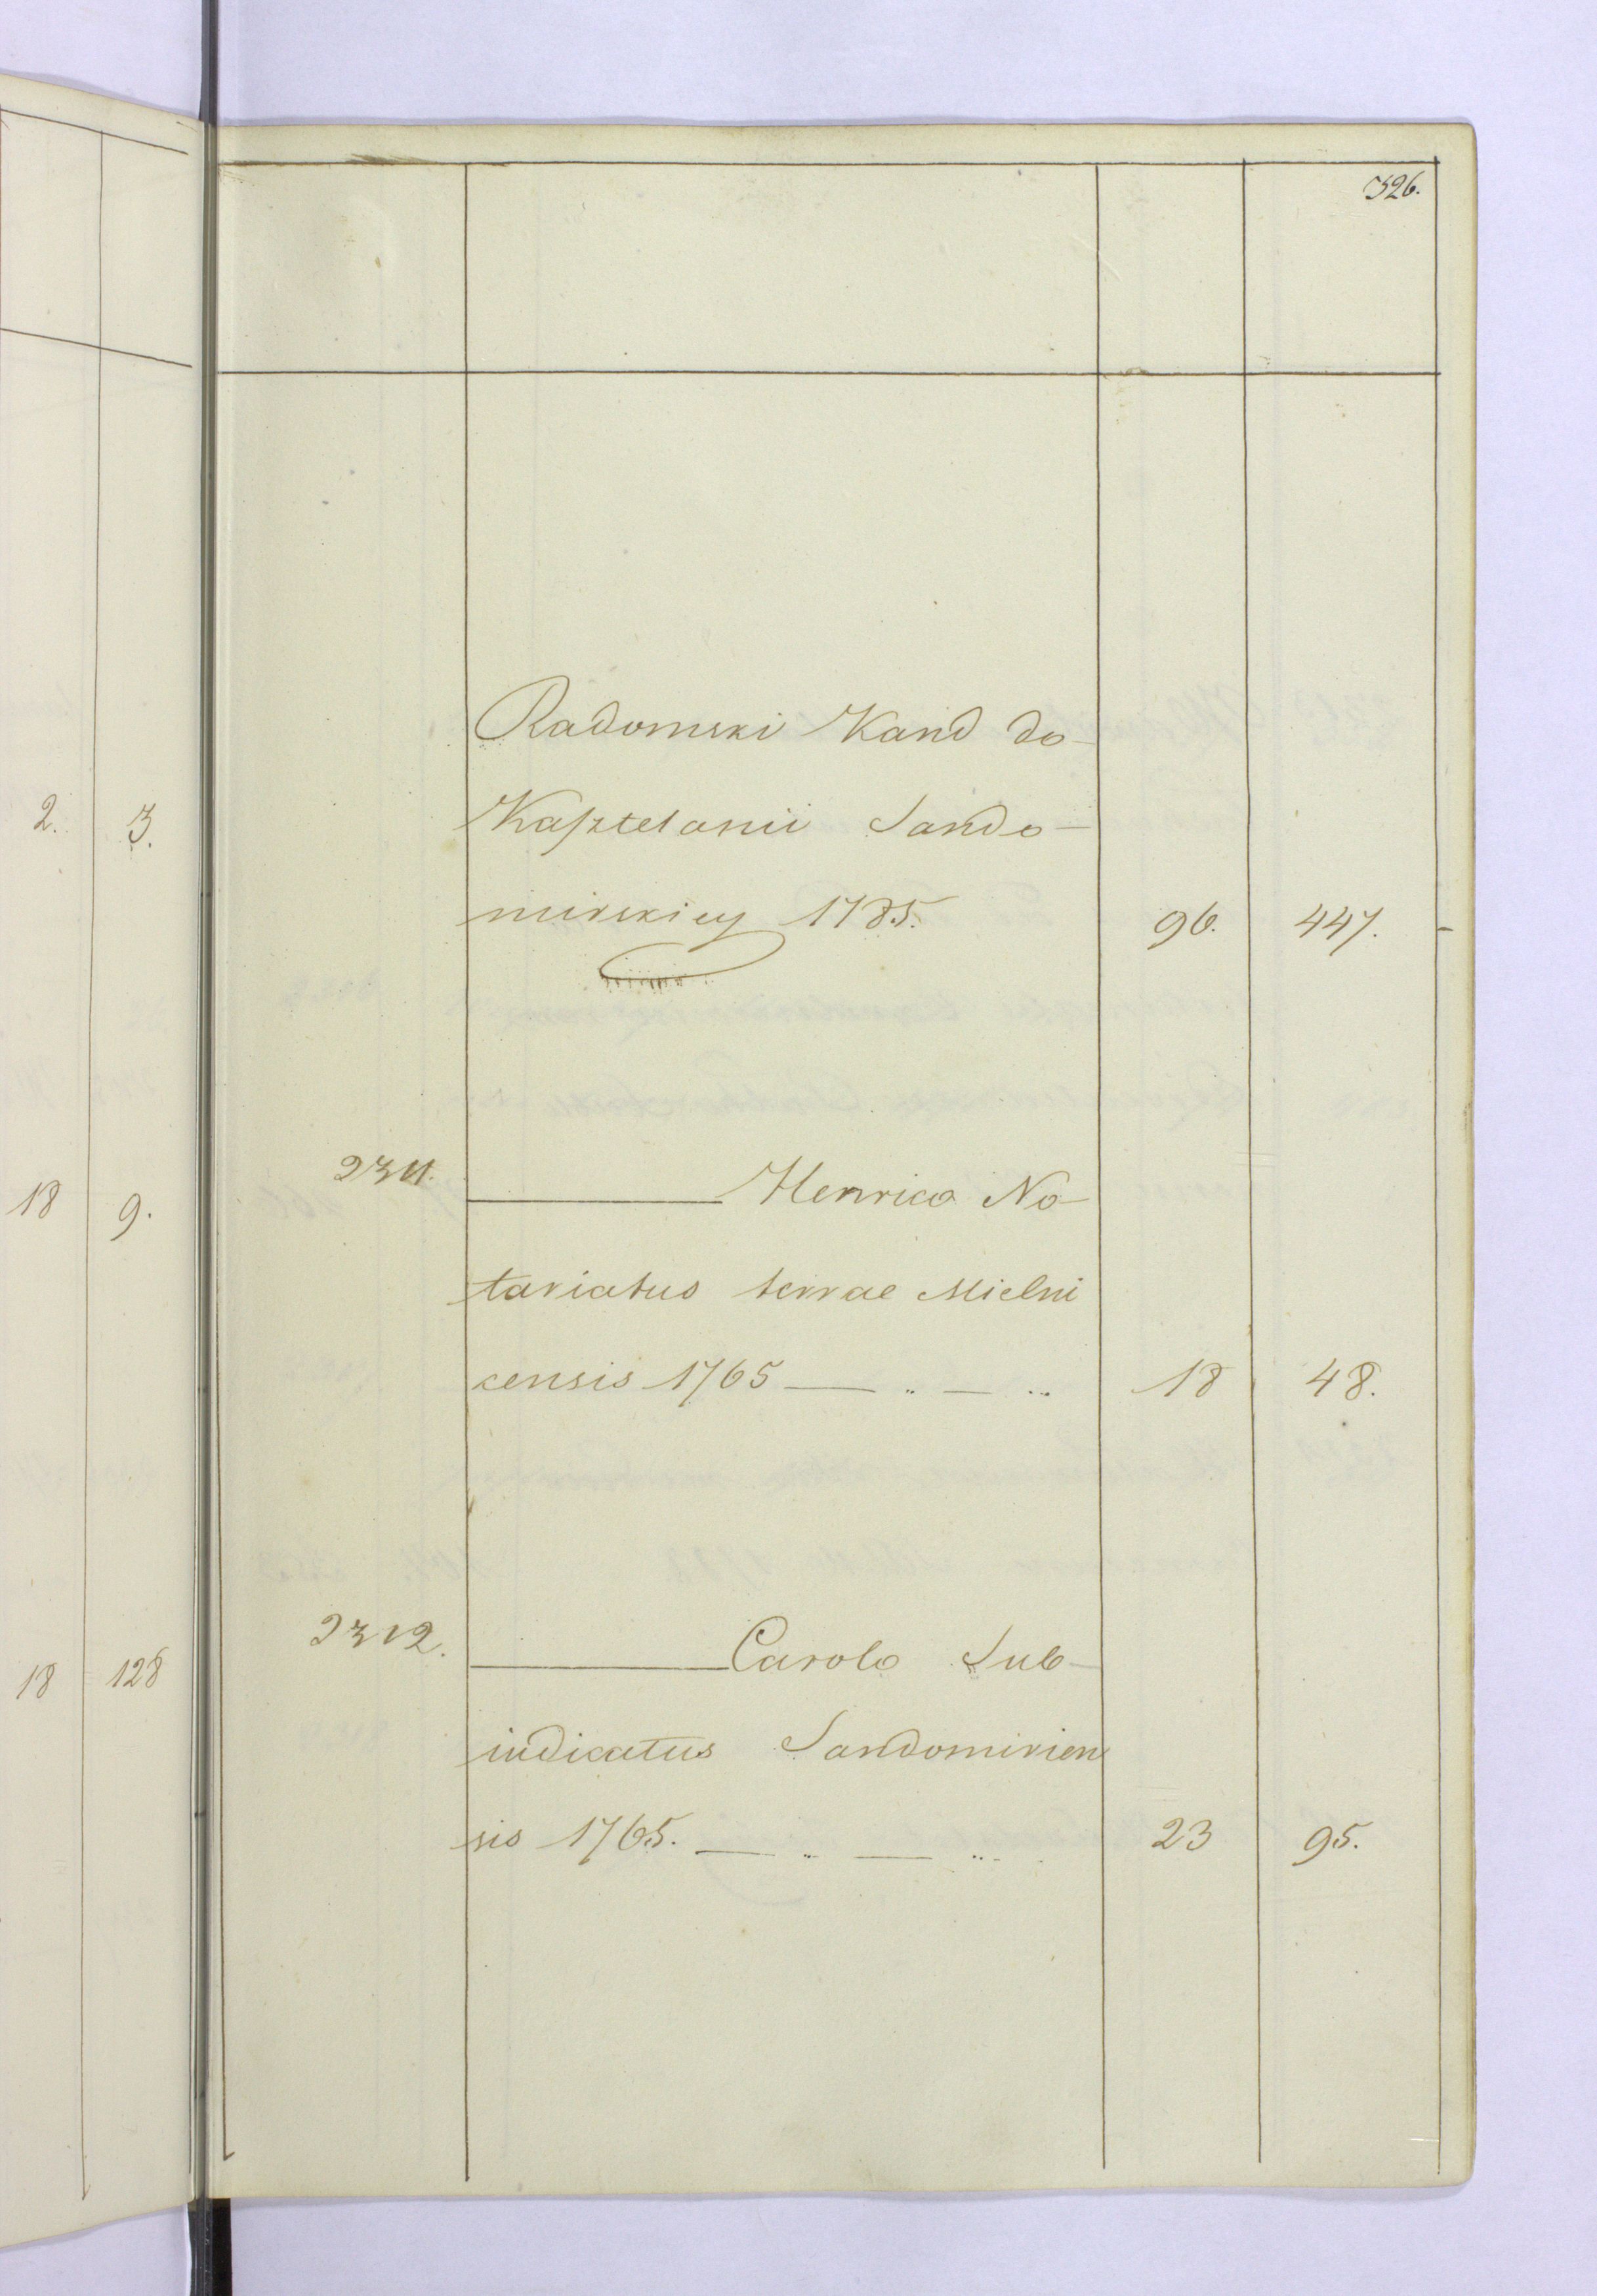 326.
Radomski Kand do-
Kasztelanii Sando-
mirskiey 1785. 96. 447.
2311. ——— Henrico No-
tariatus terrae Mielni
censis 1765 — .. — .. 18 48.
2312. ——— Carolo Sub-
iudicatus Sandomirien
sis 1765. — .. — .. 23 95.
2. 3.
18 9.
18 128